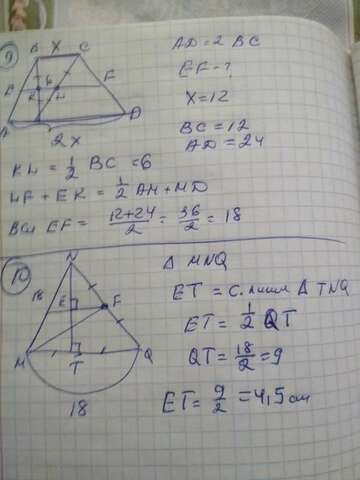 9
B X C
AD=2 BC
E K L F
EF-?
X=12
A D
2X
BC=12
AD=24
KL = 1/2 BC =6
LF + EK = 1/2 AH + HD
EF = 12+24/2 = 36/2 = 18
10
N
18
Δ MNQ
E F
ET = с. линия Δ TNQ
ET = 1/2 QT
M T Q
QT = 18/2 = 9
18
ET = 9/2 = 4,5 см